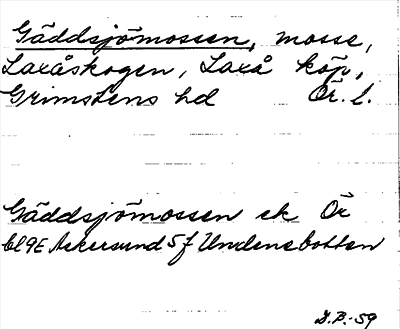 Gäddsjömossen, mosse,
Laxåskogen, Laxå köp,
Grimstens hd Ör. l.
Gäddsjömossen ek Ör
bl 9E Askersund 5 f Undenebotten
D.P.-59